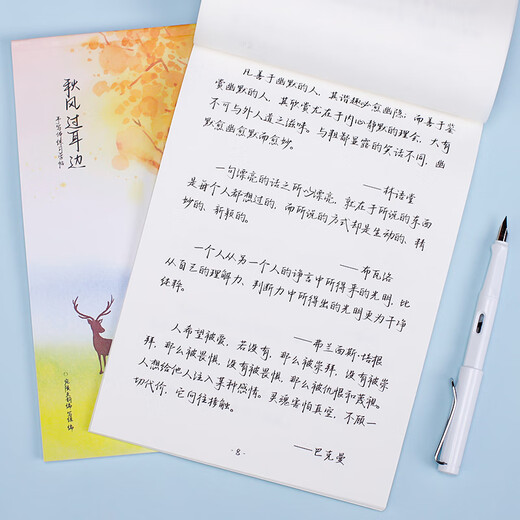 秋风过耳边
手写体练习字帖
凡善于幽默的人，其谐趣必愈幽隐，而善于鉴
赏幽默的人，其欣赏尤在于内心静默的理会，大有
不可与外人道之滋味。与粗鄙显露的笑话不同，幽
默愈幽愈默而愈妙。
——林语堂
一句漂亮的话之所以漂亮，就在于所说的东西
是每个人都想过的，而所说的方式却是生动的、精
妙的、新颖的。
——布瓦洛
一个人从另一个人的诤言中所得来的光明，比
从自己的理解力、判断力中所得出的光明更为干净
纯粹。
——弗兰西斯·培根
人希望被爱，若没有，那么被崇拜，没有被崇
拜，那么被畏惧，没有被畏惧，那么被仇恨和蔑视。
人想给他人注入某种感情。灵魂害怕真空，不顾一
切代价，它向往接触。
——巴克曼
-8-